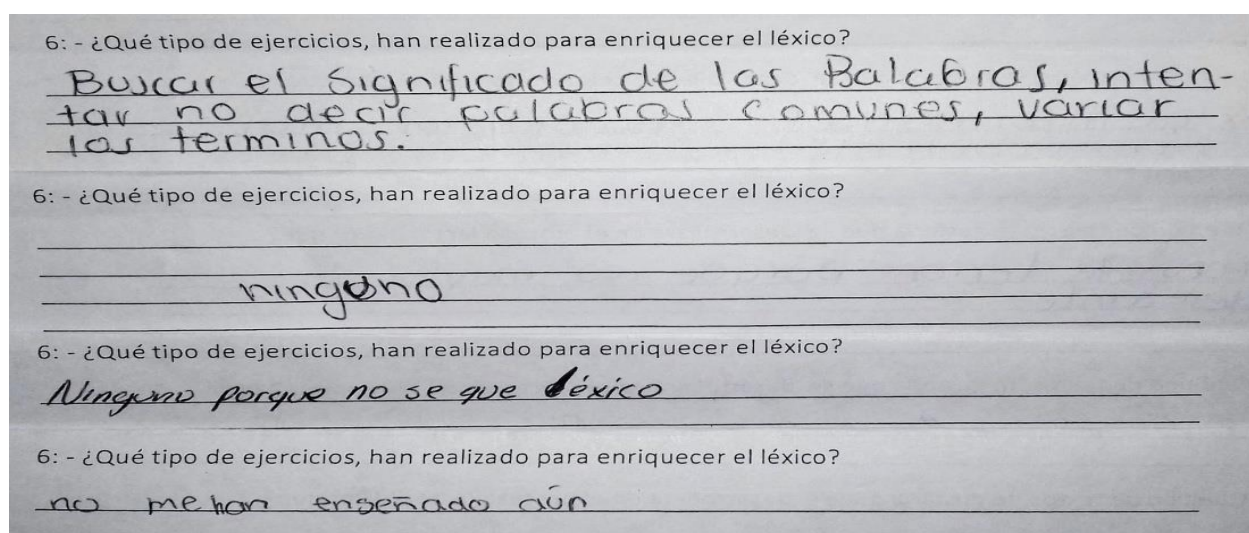 6: - ¿Qué tipo de ejercicios, han realizado para enriquecer el léxico?
Buscar el significado de las Balabras, inten-
tar no decir palabras comunes, variar
los terminos.
6: - ¿Qué tipo de ejercicios, han realizado para enriquecer el léxico?
ningono
6: - ¿Qué tipo de ejercicios, han realizado para enriquecer el léxico?
Ninguno porque no se que léxico
6: - ¿Qué tipo de ejercicios, han realizado para enriquecer el léxico?
no me han enseñado aún